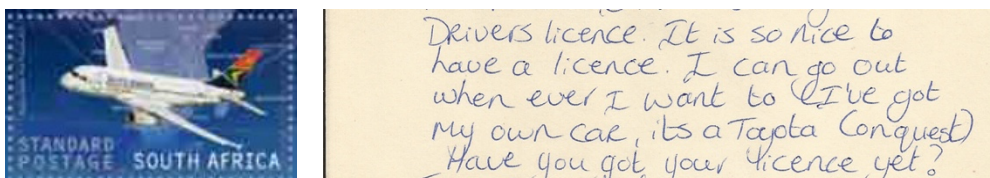 STANDARD
POSTAGE SOUTH AFRICA
Drivers licence. It is so nice to
have a licence. I can go out
when ever I want to (I've got
my own car, its a Toyota Conquest)
Have you got your licence yet?